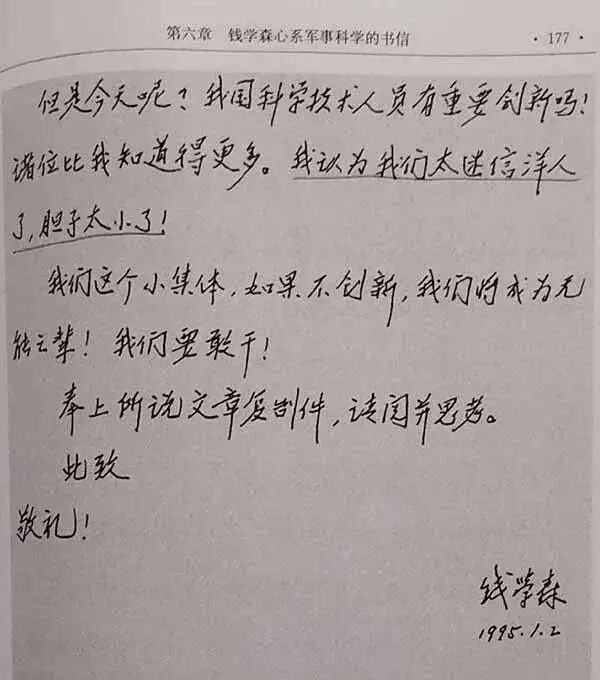 第六章　钱学森心系军事科学的书信　· 177 ·
但是今天呢？我国科学技术人员有重要创新吗！
诸位比我知道得更多。我认为我们太迷信洋人
了，胆子太小了！
我们这个小集体，如果不创新，我们将成为无
能之辈！我们要敢干！
奉上所说文章复制件，请阅并思考。
此致
敬礼！
钱学森
1995.1.2